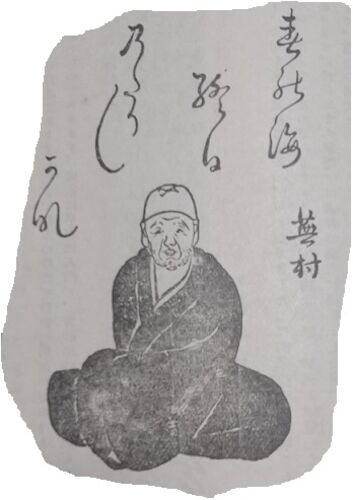 春の海
終日
のたり〳〵
かな
蕪村